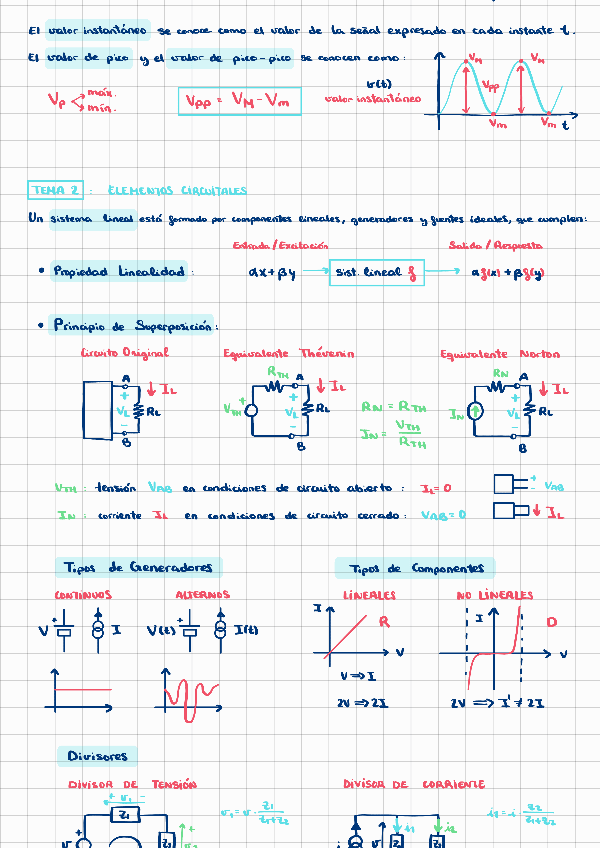 El valor instantáneo se conoce como el valor de la señal expresado en cada instante t.
El valor de pico y el valor de pico-pico se conocen como:
Vp máx. mín.
Vpp = VM - Vm
v(t)
valor instantáneo
VM VM
Vpp
Vm Vm t
TEMA 2 : ELEMENTOS CIRCUITALES
Un sistema lineal está formado por componentes lineales, generadores y fuentes ideales, que cumplen:
Entrada/Excitación Salida/Respuesta
• Propiedad Linealidad: αx + βy sist. lineal f αf(x) + βf(y)
• Principio de Superposición:
Circuito Original Equivalente Thévenin Equivalente Norton
A IL + VL - RL B
RTH A IL + VTH + VL - RL B
RN = RTH
IN = VTH / RTH
RN A IL IN + VL - RL B
VTH : tensión VAB en condiciones de circuito abierto : IL = 0 + - VAB
IN : corriente IL en condiciones de circuito cerrado : VAB = 0 IL
Tipos de Generadores Tipos de Componentes
CONTINUOS ALTERNOS LINEALES NO LINEALES
V + I V(t) + I(t)
I R V
I D V
V ⇒ I
2V ⇒ 2I 2V ⇒ I' ≠ 2I
Divisores
DIVISOR DE TENSIÓN DIVISOR DE CORRIENTE
+ v1 -
v1 = v · Z1 / Z1+Z2
i1 = i · Z2 / Z1+Z2
Z1
i1 i2
v + Z2 + v2
i v Z1 Z2